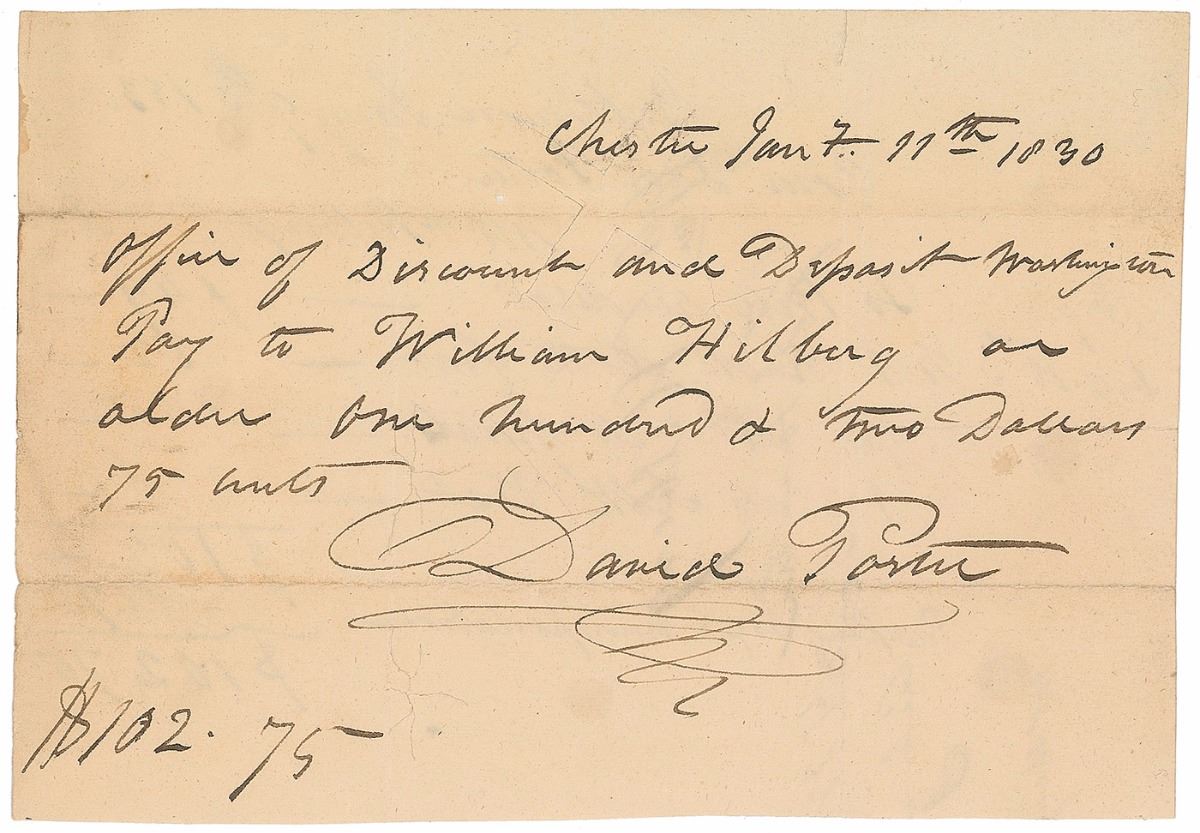 Chester Jany. 11th 1830
Office of Discount and Deposit Washington
Pay to William Hilberg or
older One hundred & two Dollars
75 cents
David Porter
$102. 75